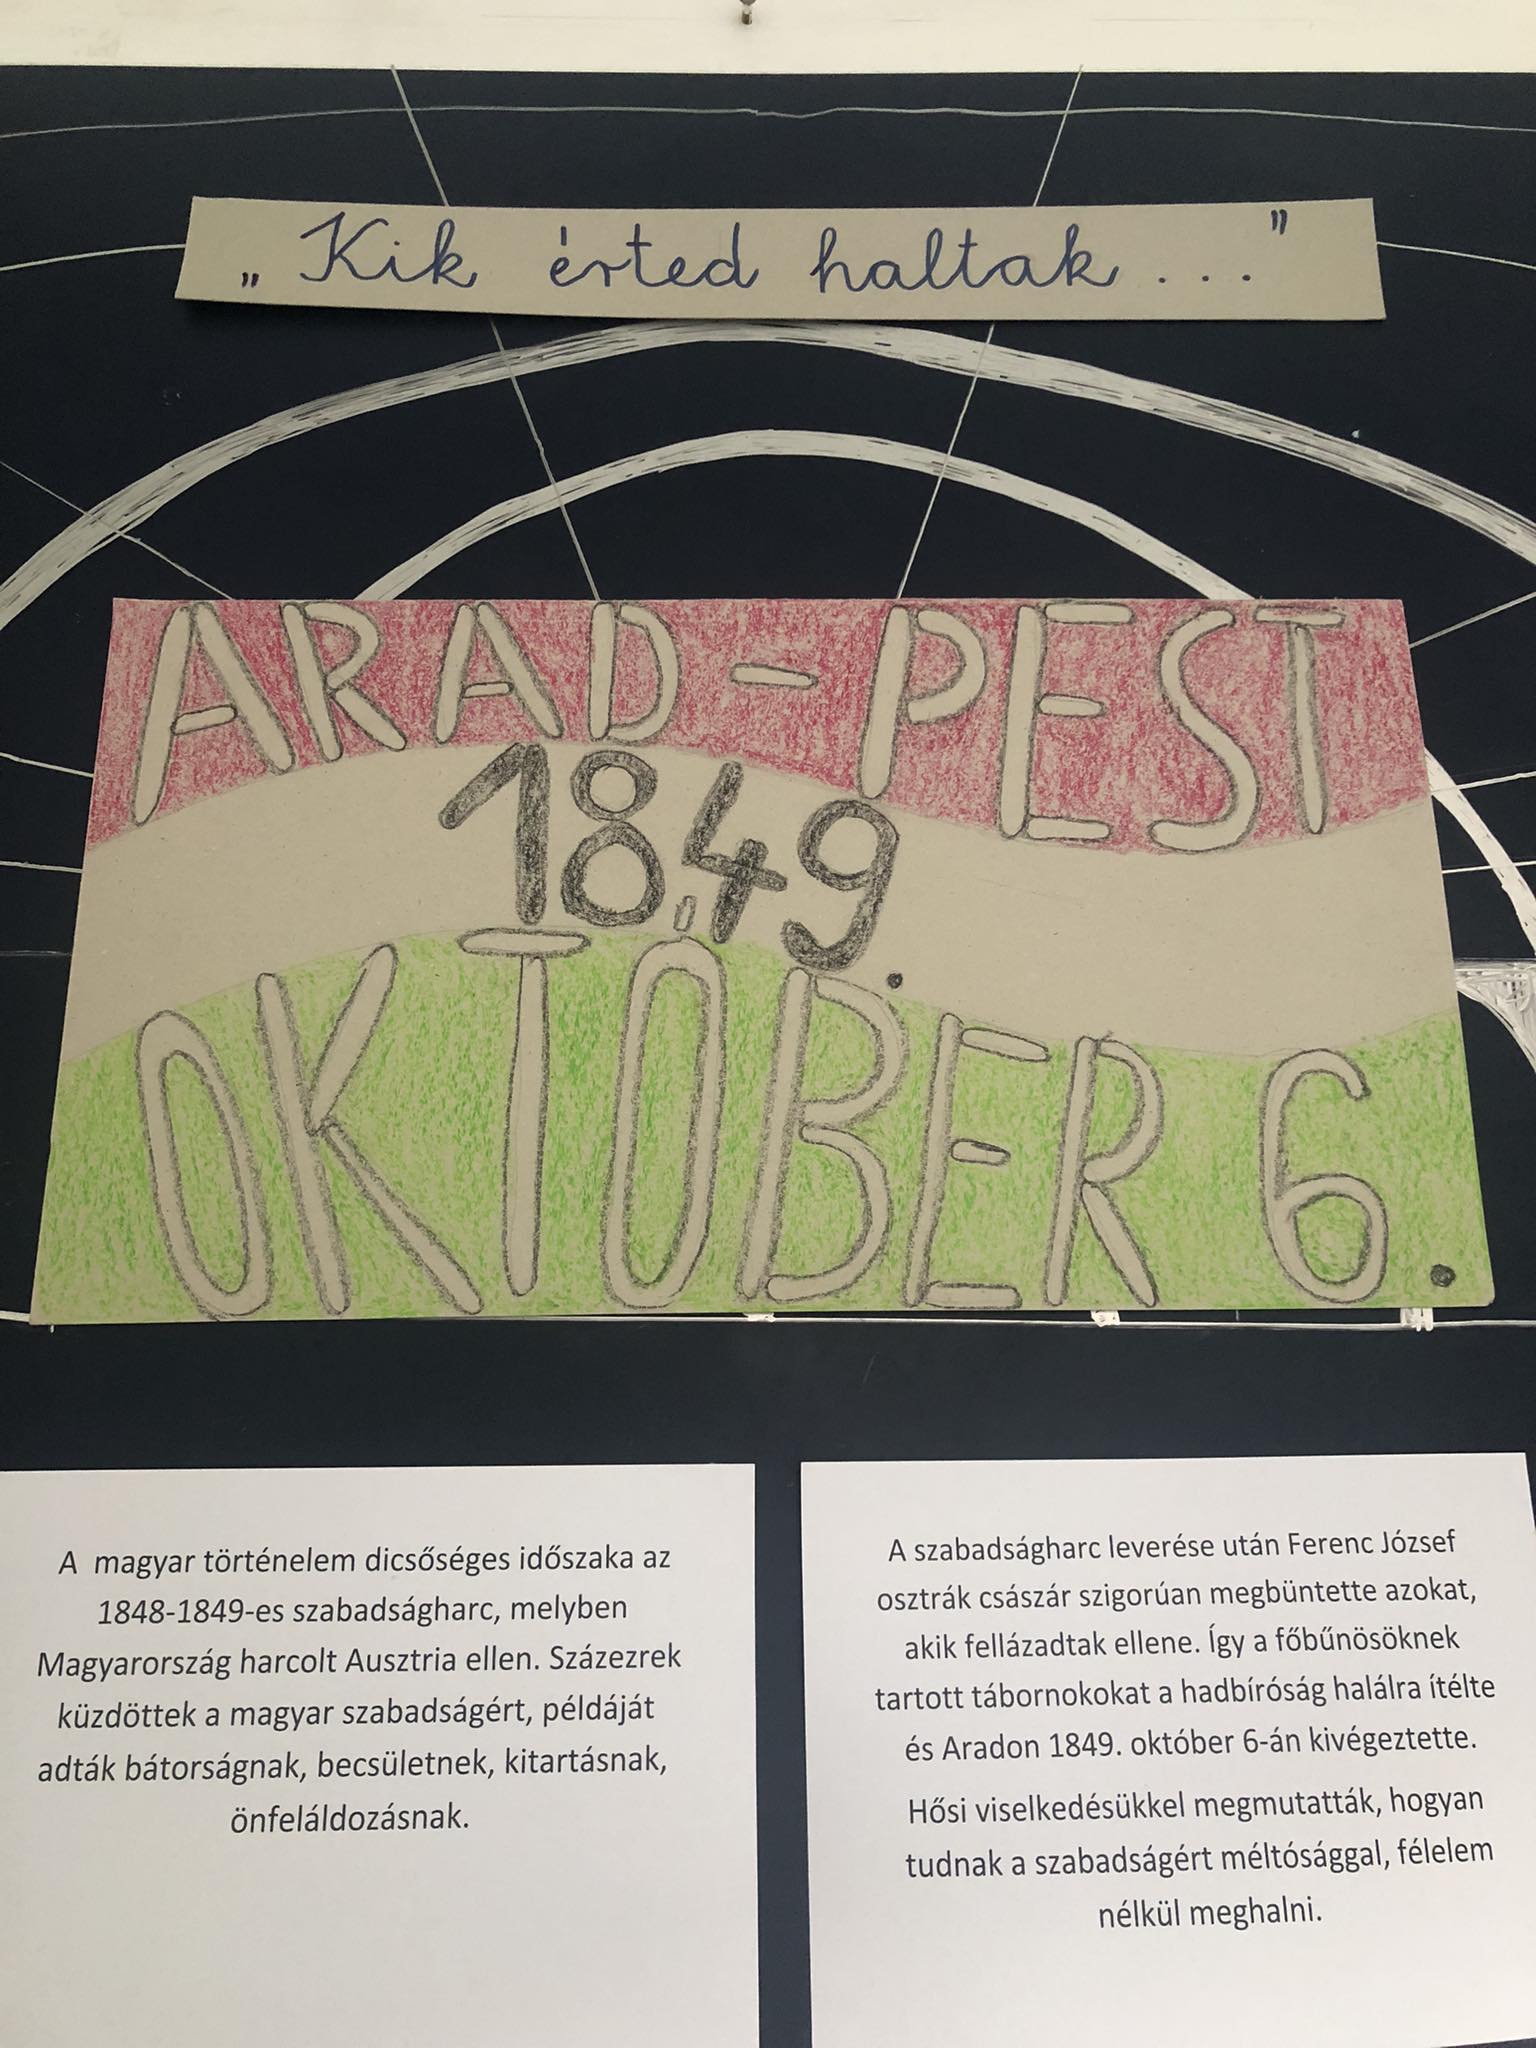 „Kik érted haltak..."
ARAD-PEST
1849.
OKTÓBER 6.
A magyar történelem dicsőséges időszaka az
1848-1849-es szabadságharc, melyben
Magyarország harcolt Ausztria ellen. Százezrek
küzdöttek a magyar szabadságért, példáját
adták bátorságnak, becsületnek, kitartásnak,
önfeláldozásnak.
A szabadságharc leverése után Ferenc József
osztrák császár szigorúan megbüntette azokat,
akik fellázadtak ellene. Így a főbűnösöknek
tartott tábornokokat a hadbíróság halálra ítélte
és Aradon 1849. október 6-án kivégeztette.
Hősi viselkedésükkel megmutatták, hogyan
tudnak a szabadságért méltósággal, félelem
nélkül meghalni.